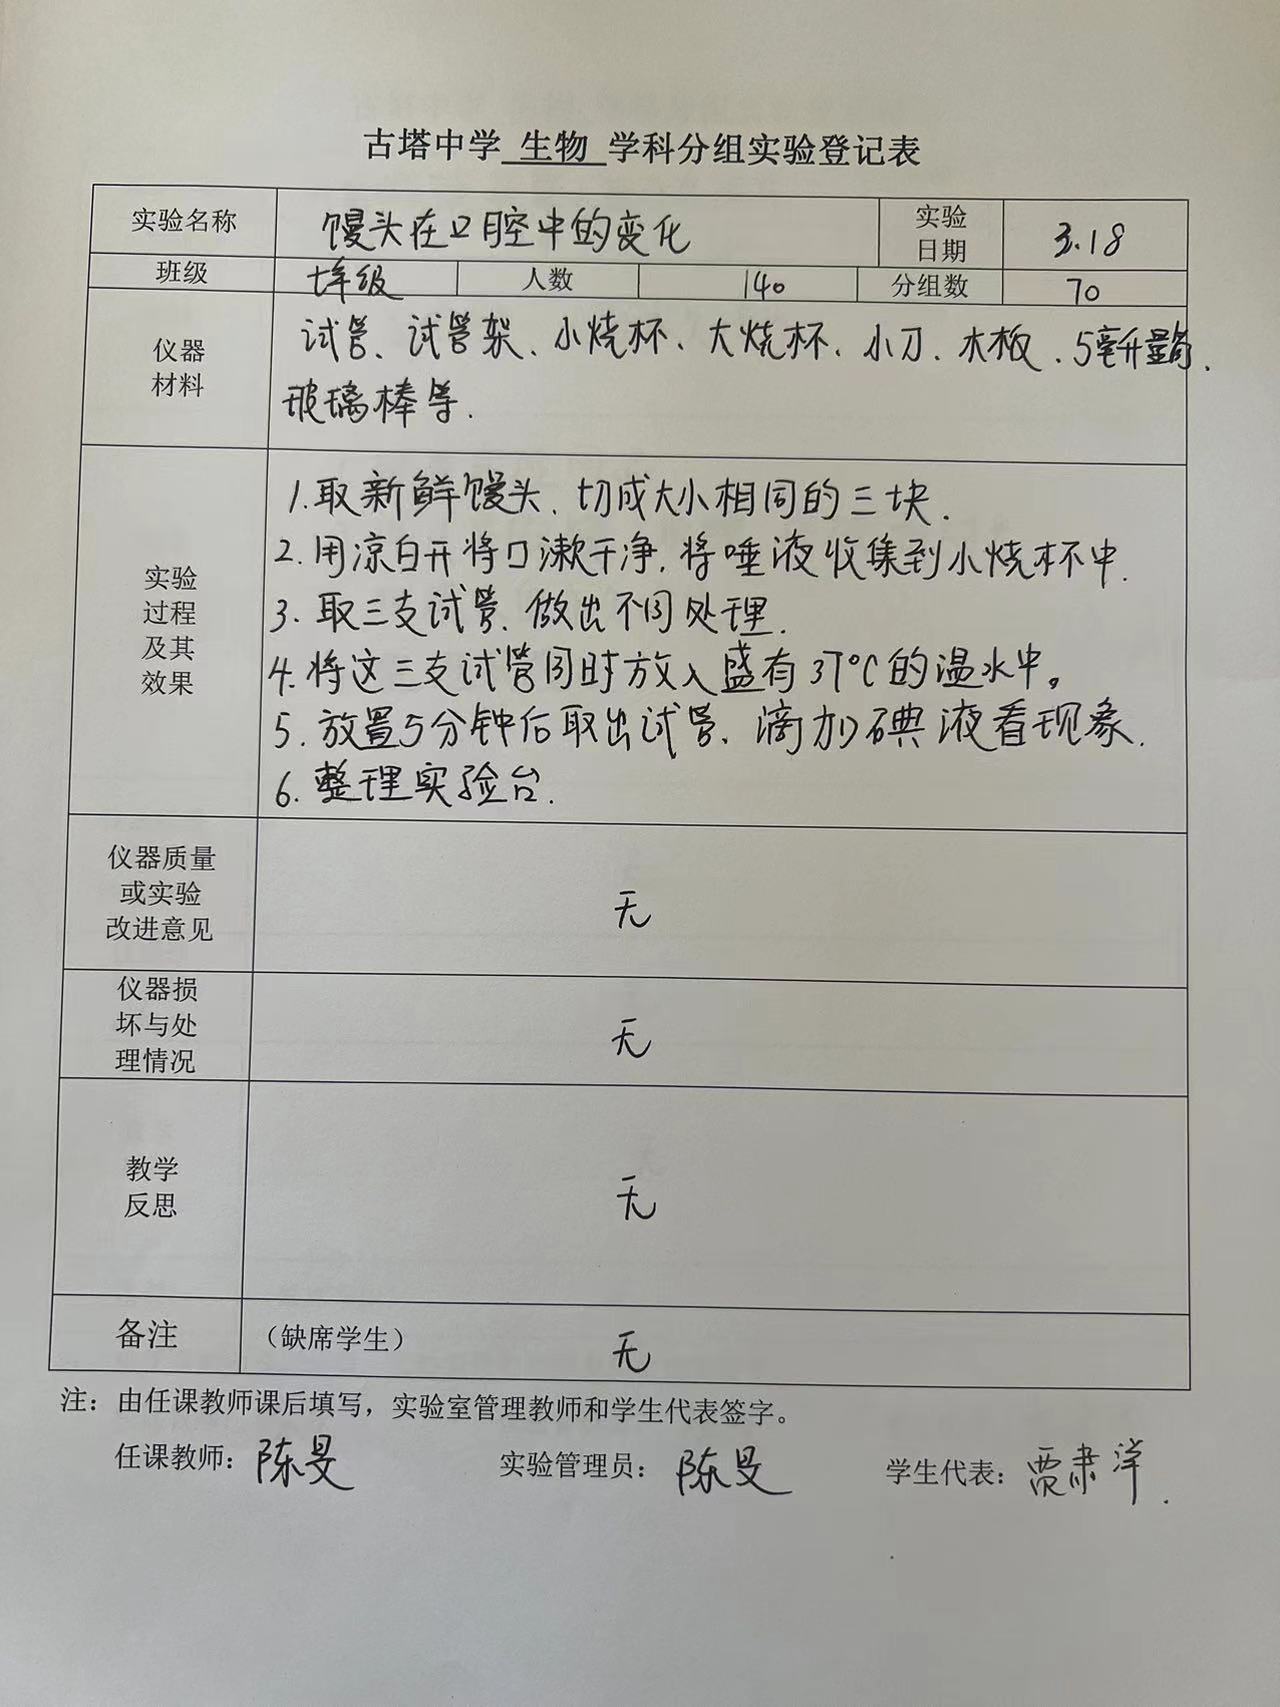 古塔中学 生物 学科分组实验登记表
实验名称 馒头在口腔中的变化 实验日期 3.18
班级 七年级 人数 140 分组数 70
仪器材料
试管、试管架、小烧杯、大烧杯、小刀、木板、5毫升量筒、
玻璃棒等.
实验过程及其效果
1.取新鲜馒头、切成大小相同的三块.
2.用凉白开将口漱干净,将唾液收集到小烧杯中.
3.取三支试管、做出不同处理.
4.将这三支试管同时放入盛有37°C的温水中。
5.放置5分钟后取出试管、滴加碘液看现象.
6.整理实验台.
仪器质量或实验改进意见 无
仪器损坏与处理情况 无
教学反思 无
备注 (缺席学生) 无
注：由任课教师课后填写，实验室管理教师和学生代表签字。
任课教师：陈旻 实验管理员：陈旻 学生代表：贾肃洋.